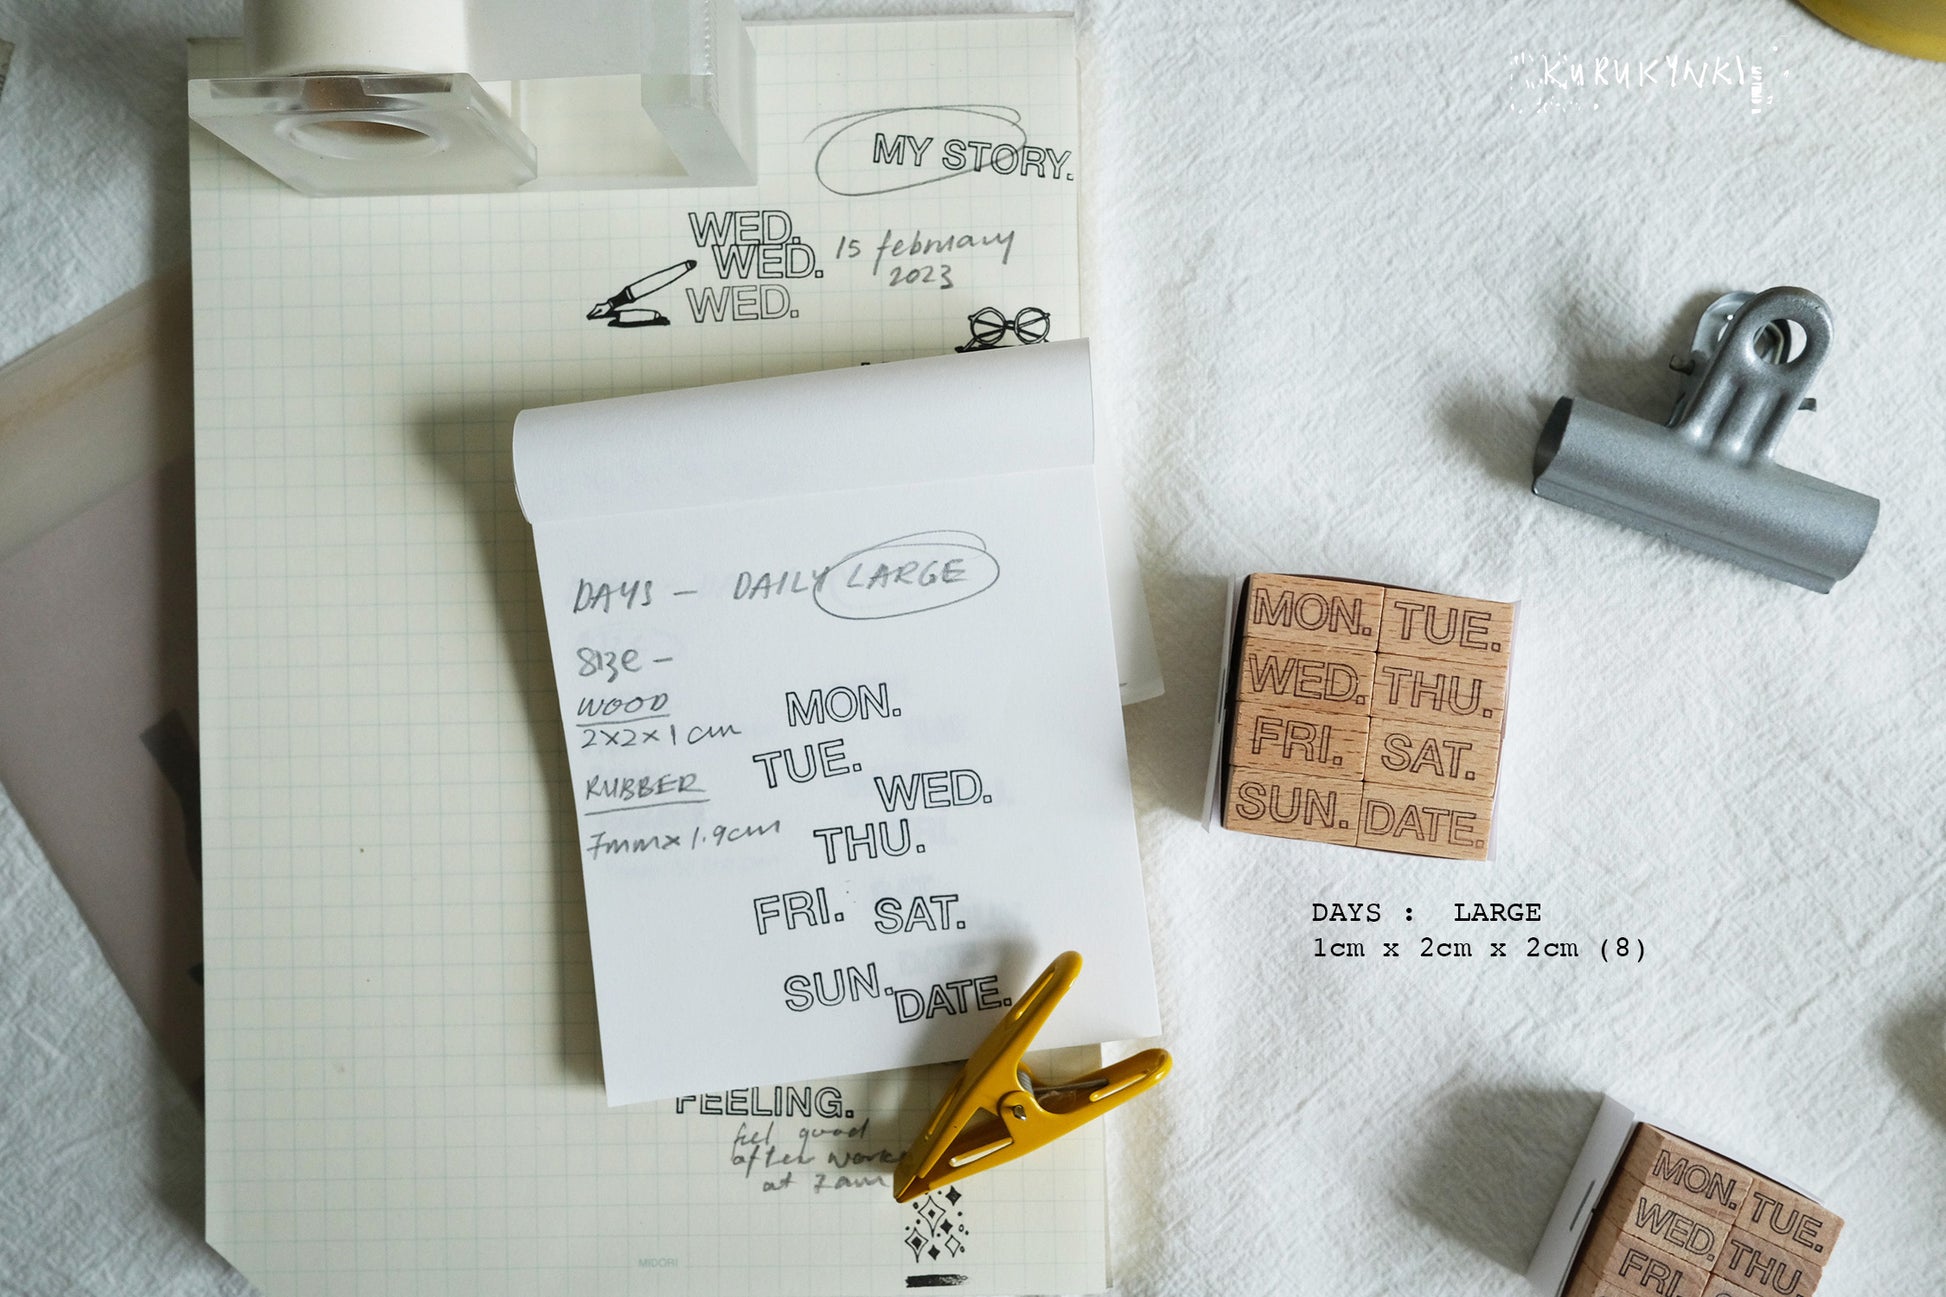 KURUKYNKI
MY STORY.
WED.
WED.
WED.
15 february
2023
DAYS - DAILY LARGE
Size -
WOOD
2x2x1 cm
RUBBER
7mm x 1.9cm
MON.
TUE.
WED.
THU.
FRI. SAT.
SUN. DATE.
FEELING.
feel good
after work
at 7am
MIDORI
MON. TUE.
WED. THU.
FRI. SAT.
SUN. DATE.
DAYS : LARGE
1cm x 2cm x 2cm (8)
MON. TUE.
WED. THU.
FRI.